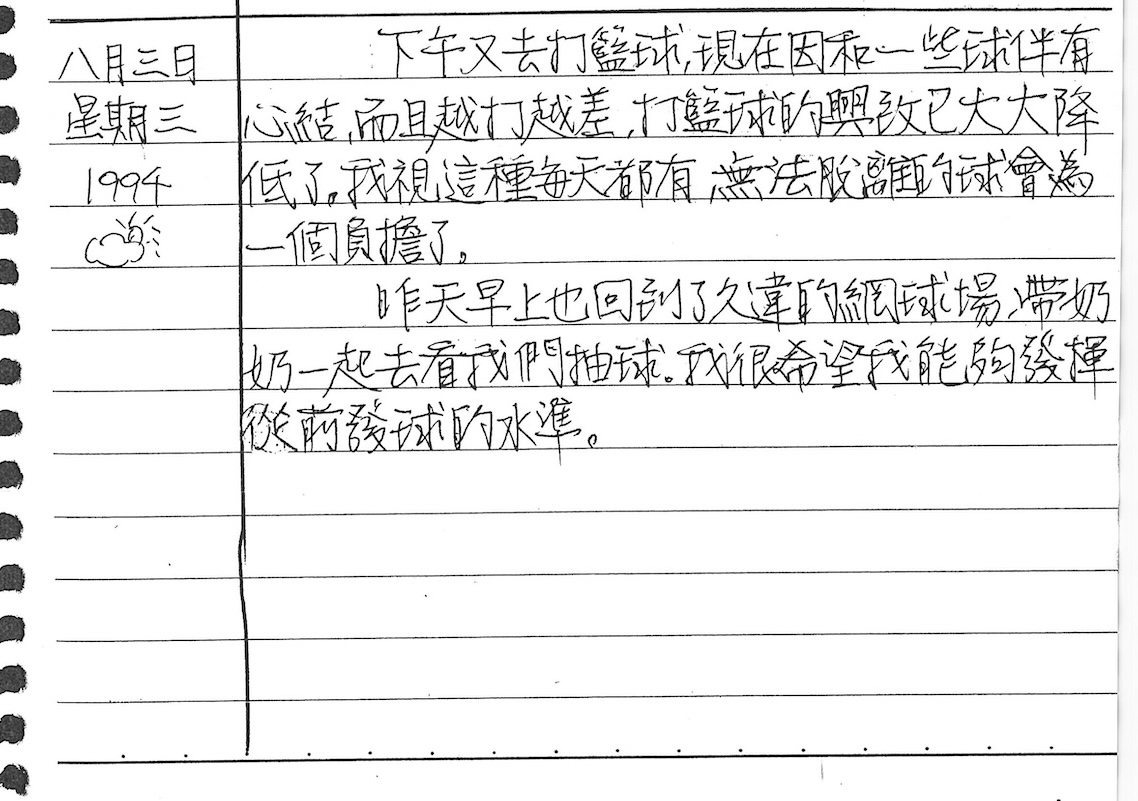 八月三日
星期三
1994
下午又去打籃球,現在因和一些球伴有
心結,而且越打越差,打籃球的興致已大大降
低了。我視這種每天都有、無法脫離的球會為
一個負擔了。
昨天早上也回到了久違的網球場,帶奶
奶一起去看我們抽球。我很希望我能夠發揮
從前發球的水準。